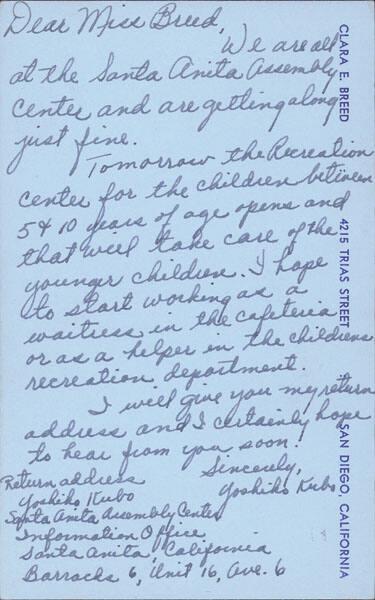 Dear Miss Breed,
We are all
at the Santa Anita Assembly
Center and are getting along
just fine.
Tomorrow the Recreation
center for the children between
5 & 10 years of age opens and
that will take care of the
younger children. I hope
to start working as a
waitress in the cafeteria
or as a helper in the childrens
recreation department.
I will give you my return
address and I certainly hope
to hear from you soon!
Sincerely,
Yoshiko Kubo
Return address
Yoshiko Kubo
Santa Anita Assembly Center
Information Office
Santa Anita, California
Barracks 6, Unit 16, Ave. 6
CLARA E. BREED 4215 TRIAS STREET SAN DIEGO, CALIFORNIA